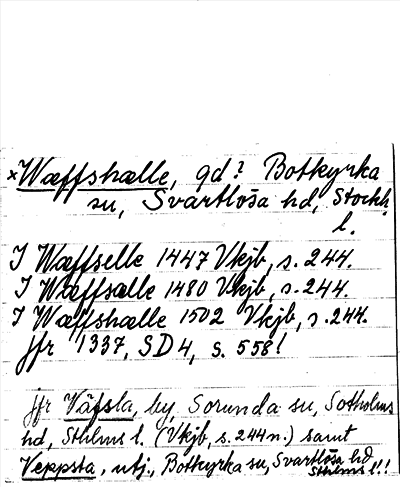 ×Wæffshælle, gd? Botkyrka
sn, Svartlösa hd, Stockh.
l.
I Wæffselle 1447 Vkjb, s. 244.
I Wæffsælle 1480 Vkjb, s. 244.
I Wæffshælle 1502 Vkjb, s. 244.
Jfr 1337, SD 4, s. 558!
jfr Väfsta, by, Sorunda sn, Sotholms
hd, Sthlms l. (Vkjb, s. 244 n.) samt
Veppsta, utj., Botkyrka sn, Svartlösa hd
Sthlms l.!!